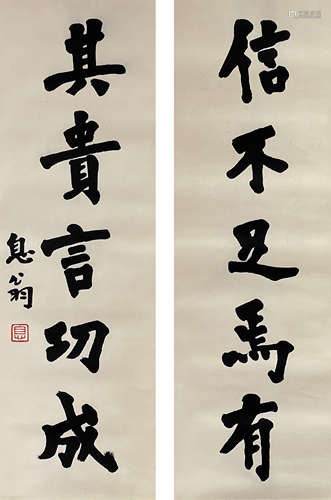 信不足焉有
其貴言功成
息翁